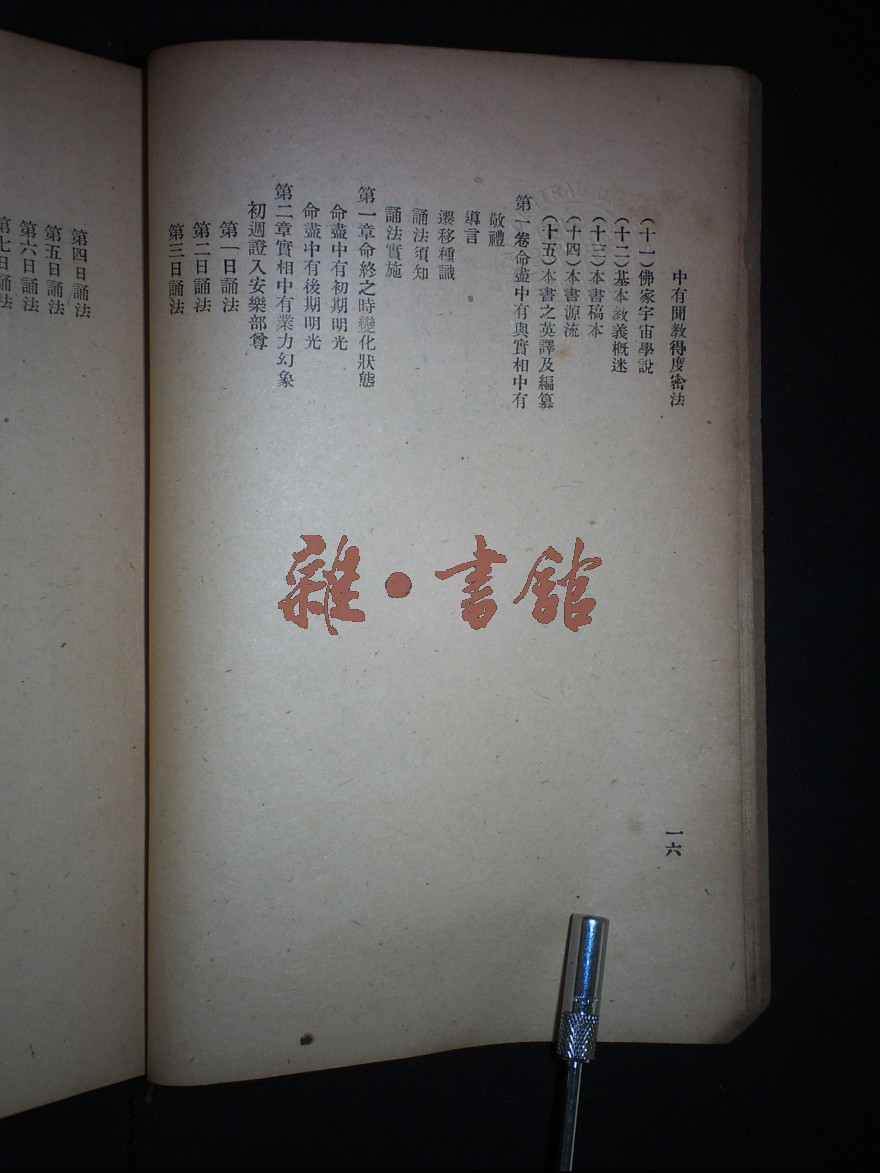 中有聞教得度密法
（十一）佛家宇宙學說
（十二）基本教義概迷
（十三）本書稿本
（十四）本書源流
（十五）本書之英譯及編纂
第一卷命盡中有與實相中有
敬禮
導言
遷移種識
誦法須知
誦法實施
第一章命終之時變化狀態
命盡中有初期明光
命盡中有後期明光
第二章實相中有業力幻象
初週證入安樂部尊
第一日誦法
第二日誦法
第三日誦法
一六
第四日誦法
第五日誦法
第六日誦法
第七日誦法
雜·書館